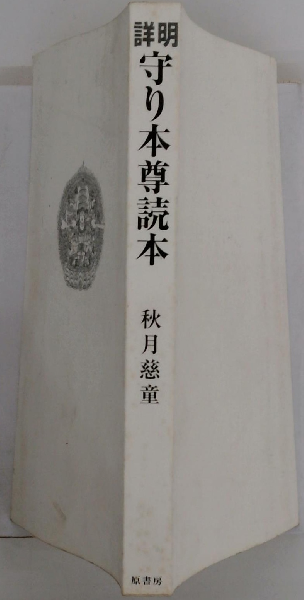 詳明
守り本尊読本
秋月慈童
原書房